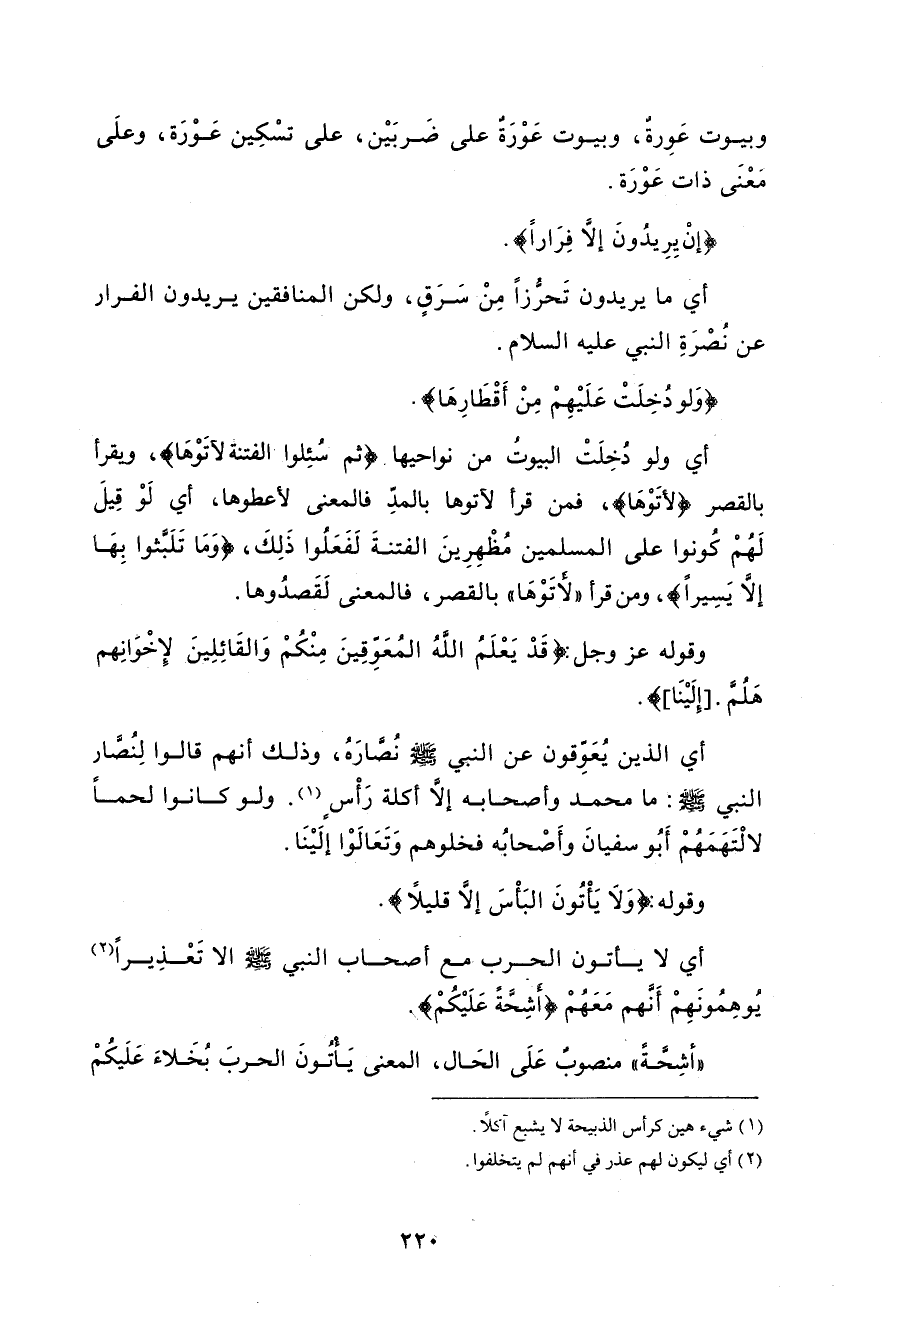 وبيوت عَورةٌ، وبيوت عَوْرَةٌ على ضَربَيْن، على تسْكِين عَوْرَة، وعلَى
مَعْنَى ذات عَوْرَة.
﴿إنْ يرِيدُونَ إلَّا فِرَاراً﴾.
أي ما يريدون تَحرُّزاً مِنْ سَرَقٍ، ولكن المنافقين يريدون الفرار
عن نُصْرَةِ النبي عليه السلام.
﴿وَلو دُخِلَتْ عَلَيْهِمْ مِنْ أَقْطَارِهَا﴾.
أي ولو دُخِلَتْ البيوتُ من نواحيها ﴿ثم سُئِلوا الفتنة لآتَوْهَا﴾، ويقرأ
بالقصر ﴿لأتَوْهَا﴾، فمن قرأ لآتوها بالمدِّ فالمعنى لأعطوها، أي لَوْ قِيلَ
لَهُمْ كُونوا على المسلمين مُظْهِرِينَ الفتنةَ لَفَعَلُوا ذَلِكَ، ﴿وَمَا تَلَبَّثوا بِهَا
إلَّا يَسِيراً﴾، ومن قرأ «لأَتَوْهَا» بالقصر، فالمعنى لَقَصدُوها.
وقوله عز وجل: ﴿قَدْ يَعْلَمُ اللَّهُ المُعَوِّقِينَ مِنْكُمْ وَالقَائِلِينَ لإخْوَانِهِم
هَلُمَّ .[إلَيْنَا]﴾.
أي الذين يُعَوِّقون عن النبي ﷺ نُصَّارَهُ، وذلك أنهم قالوا لِنُصَّار
النبي ﷺ: ما محمد وأصحابه إلَّا أكلة رَأْسٍ (١). ولو كانوا لحماً
لالْتَهَمَهُمْ أَبُو سفيانَ وأَصْحابُه فخلوهم وَتَعَالَوْا إلَيْنَا.
وقوله: ﴿وَلَا يَأْتُونَ البَأْسَ إلَّا قليلًا﴾.
أي لا يأتون الحرب مع أصحاب النبي ﷺ الا تَعْذِيراً(٢)
يُوهِمُونَهِمْ أَنَّهم مَعَهُمْ ﴿أَشِحَّةً عَلَيْكُمْ﴾.
«أشِحَّةً» منصوبٌ عَلَى الحَال، المعنى يَأْتُونَ الحربَ بُخَلاءَ عَلَيكُمْ
(١) شيء هين كرأس الذبيحة لا يشبع آكلًا.
(٢) أي ليكون لهم عذر في أنهم لم يتخلفوا.
٢٢٠